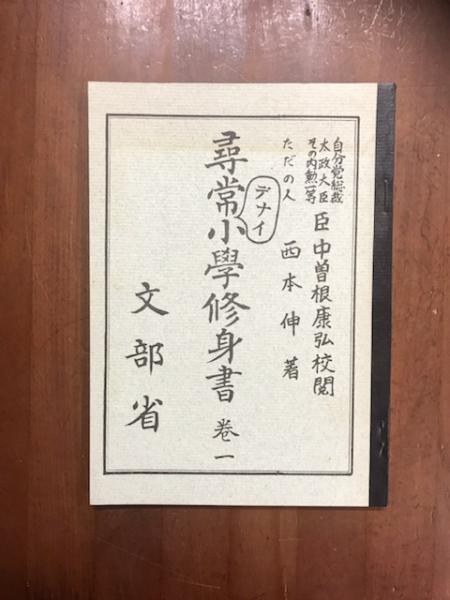 自分党総裁
太政大臣
その内勲一等
臣 中曽根康弘校閲
ただの人
西本伸著
デナイ
尋常小學修身書 巻一
文部省